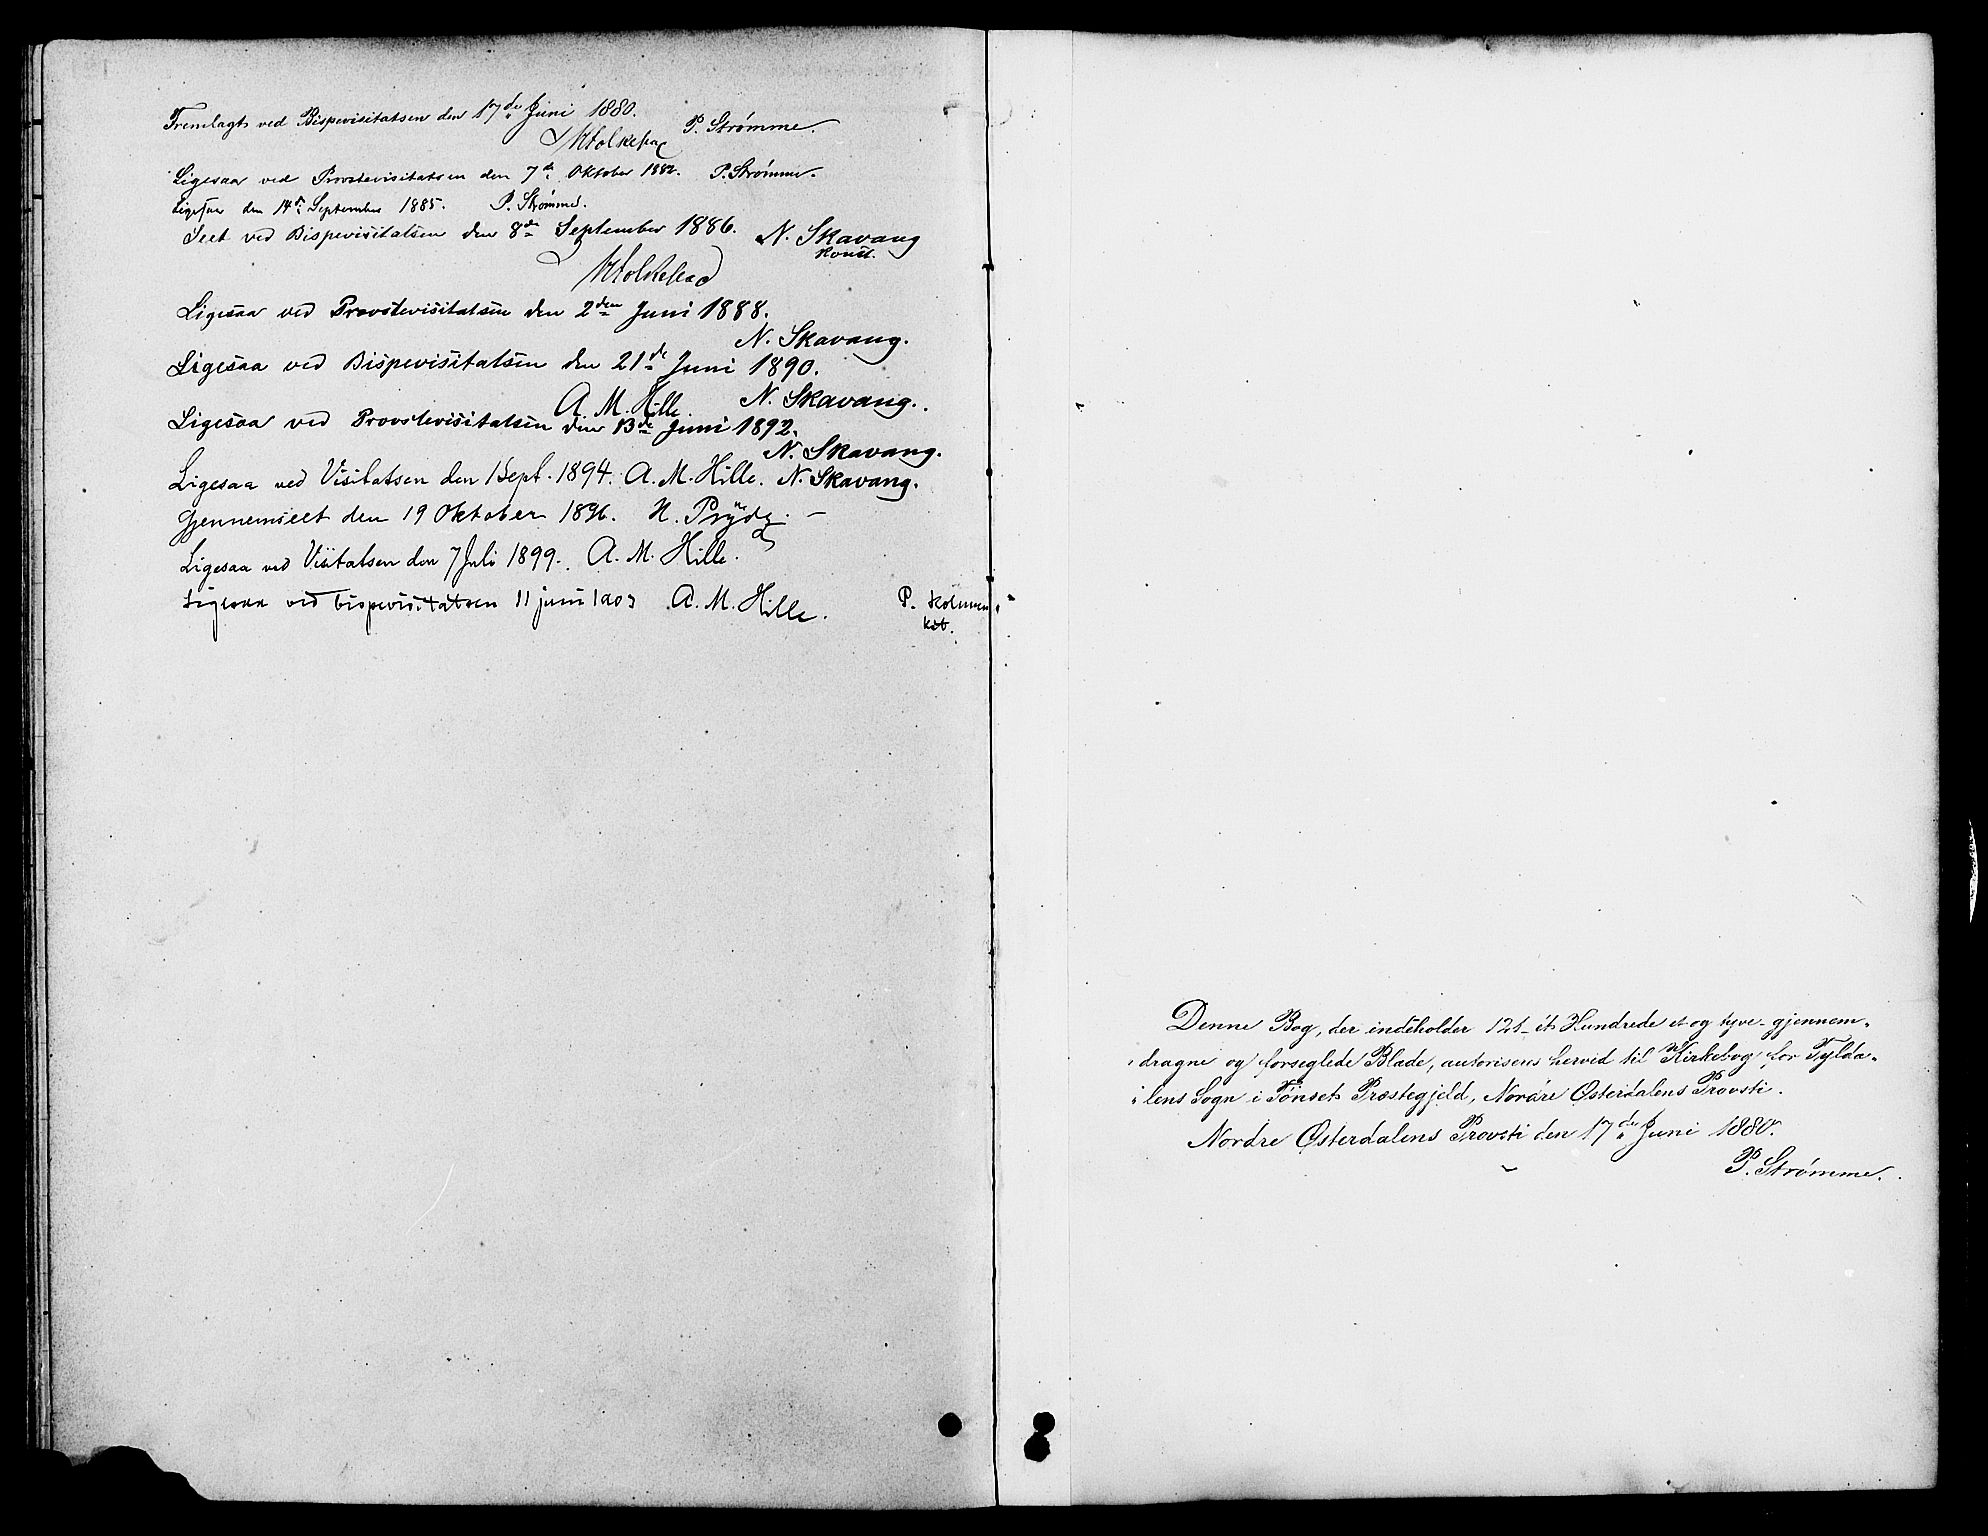 Fremlagt ved Bispevisitatsen den 17de Juni 1880.
P. Strømme.
Ligesaa ved Provstevisitatsen den 7de Oktober 1882. P. Strømme.
Ligesaa den 14de September 1885. P. Strømme.
Seet ved Bispevisitatsen den 8de September 1886. N. Skavang
konst.
Ligesaa ved Provstevisitatsen den 2den Juni 1888.
N. Skavang.
Ligesaa ved Bispevisitatsen den 21de Juni 1890.
A. M. Hille. N. Skavang.
Ligesaa ved Provstevisitatsen den 13de Juni 1892.
N. Skavang.
Ligesaa ved Visitatsen den 1 Sept. 1894. A. M. Hille. N. Skavang.
Gjennemseet den 19 Oktober 1896. N. Prydz.
Ligesaa ved Visitatsen den 7 Juli 1899. A. M. Hille.
Ligesaa ved bispevisitatsen 11 juni 1903 A. M. Hille. P.
Denne Bog, der indeholder 121 - ét Hundrede et og tyve - gjennem-
dragne og forseglede Blade, autoriseres herved til Kirkebog for Tylda-
lens Sogn i Tönset Præstegjeld, Nordre Østerdalens Provsti.
Nordre Østerdalens Provsti den 17de Juni 1880.
P. Strømme.